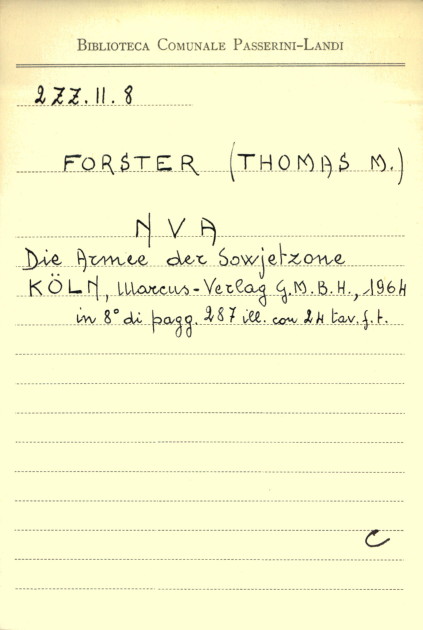 BIBLIOTECA COMUNALE PASSERINI-LANDI
2ZZ.II.8
FORSTER (THOMAS M.)
NVA
Die Armee der Sowjetzone
KÖLN, Marcus-Verlag G.M.B.H., 1964
in 8° di pagg. 287 ill. con 24 tav. f.t.
C